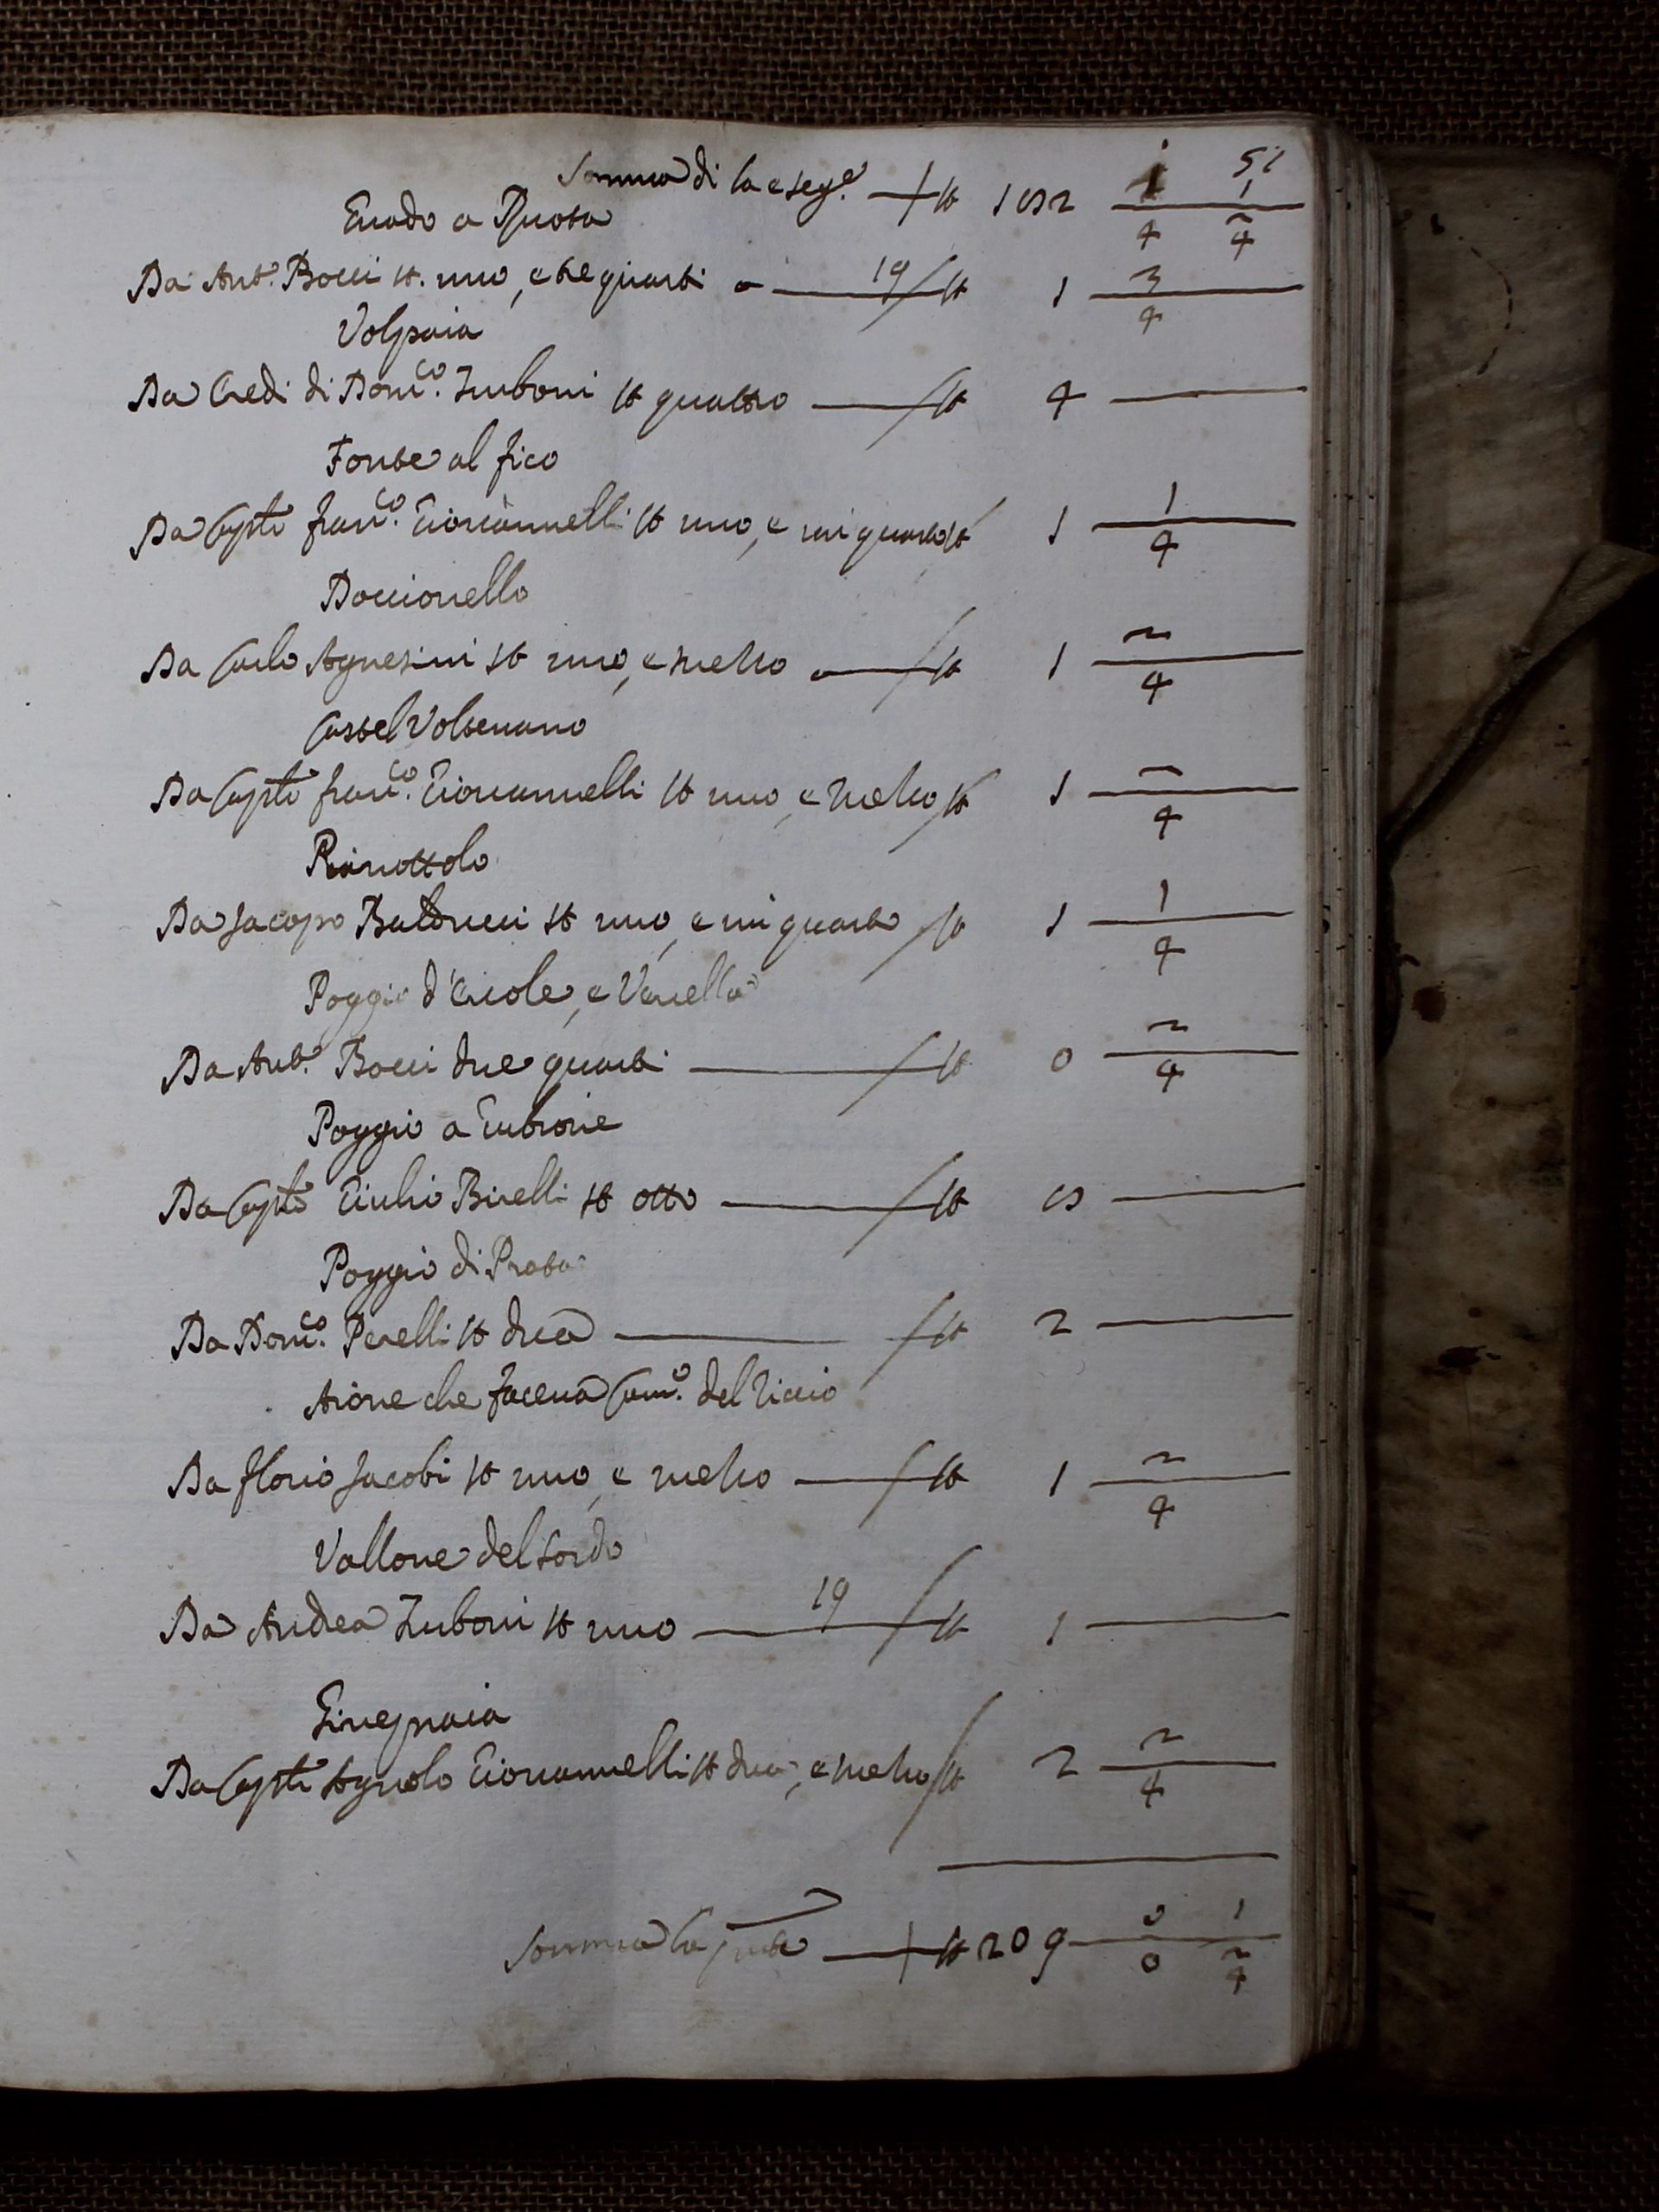 51
Somma di la e segᵉ. st 182 1/4 1/2/4
Guado a Ruota
Da Antᵒ. Bocci st. uno, e tre quarti a 19 st 1 3/4
Volpaia
Da Eredi di Domᶜᵒ. Zuboni st quattro st 4
Fonte al fico
Da Capᵗᵒ Franᶜᵒ. Giovannelli st uno, e un quarto st 1 1/4
Doccionello
Da Carlo Agnesini st uno, e mezzo st 1 2/4
Castel Volterrano
Da Capᵗᵒ Franᶜᵒ. Giovannelli st uno, e mezzo st 1 2/4
Pianottolo
Da Jacopo st uno, e un quarto st 1 1/4
Poggio d'Ercole, e
Da Antᵒ. Bocci due quarti st 0 2/4
Poggio a
Da Capᵗᵒ Giulio Birelli st otto st 8
Poggio di Prata
Da Domᶜᵒ. Perelli st dua st 2
che faceva Camᵒ. del Riccio
Da Florio Jacobi st uno, e mezzo st 1 2/4
Vallone del Sordo
Da Andrea Zuboni st uno 19 st 1
Ginepraia
Da Capᵗᵒ Agnolo Giovannelli st dua, e mezzo st 2 2/4
Somma la st 209 0/0 1/2/4